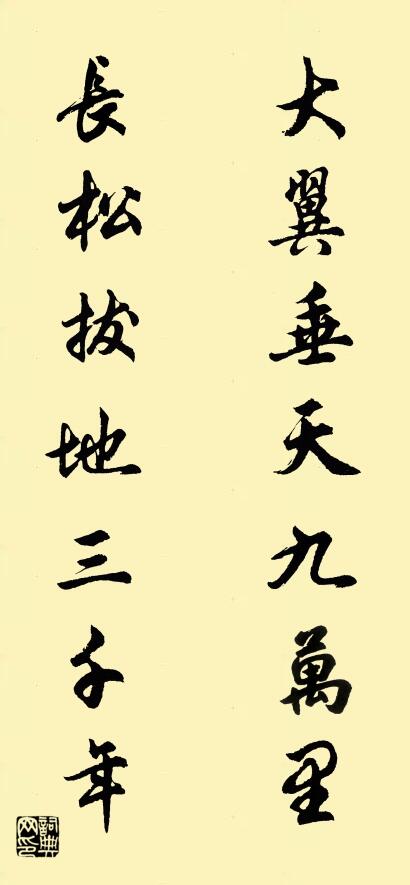 大翼垂天九萬里
長松拔地三千年
詞典網印